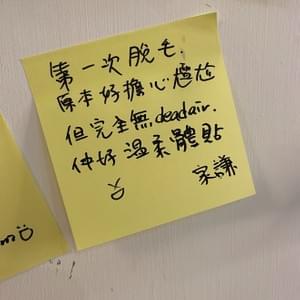 第一次脫毛,
原本好擔心尷尬
但完全無deadair.
仲好溫柔體貼
家謙
m